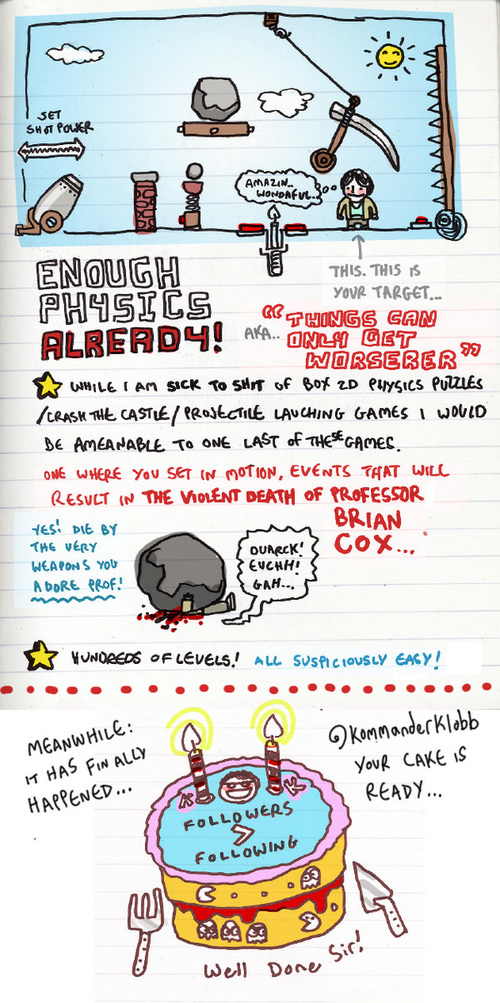 JET
SHOT POWER
AMAZIN..
WONDAFUL..
THIS. THIS IS
YOUR TARGET...
ENOUGH
PHYSICS
ALREADY!
AKA.. "THINGS CAN
ONLY GET
WORSERER"
WHILE I AM SICK TO SHIT OF BOX 2D PHYSICS PUZZLES
/CRASH THE CASTLE/PROJECTILE LAUCHING GAMES I WOULD
BE AMEANABLE TO ONE LAST OF THESE GAMES.
ONE WHERE YOU SET IN MOTION, EVENTS THAT WILL
RESULT IN THE VIOLENT DEATH OF PROFESSOR
BRIAN
COX...
YES! DIE BY
THE VERY
WEAPONS YOU
ADORE PROF!
OUARCK!
EUCHH!
GAH...
HUNDREDS OF LEVELS! ALL SUSPICIOUSLY EASY!
MEANWHILE:
IT HAS FINALLY
HAPPENED...
@KommanderKlobb
YOUR CAKE IS
READY...
K K
FOLLOWERS
>
FOLLOWING
Well Done Sir!